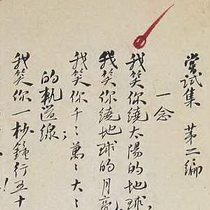 嘗試集 第二編
一念
我笑你繞太陽的地球
我笑你繞地球的月亮
我笑你千千萬萬大大
的軌道線
我笑你一秒鐘行五十